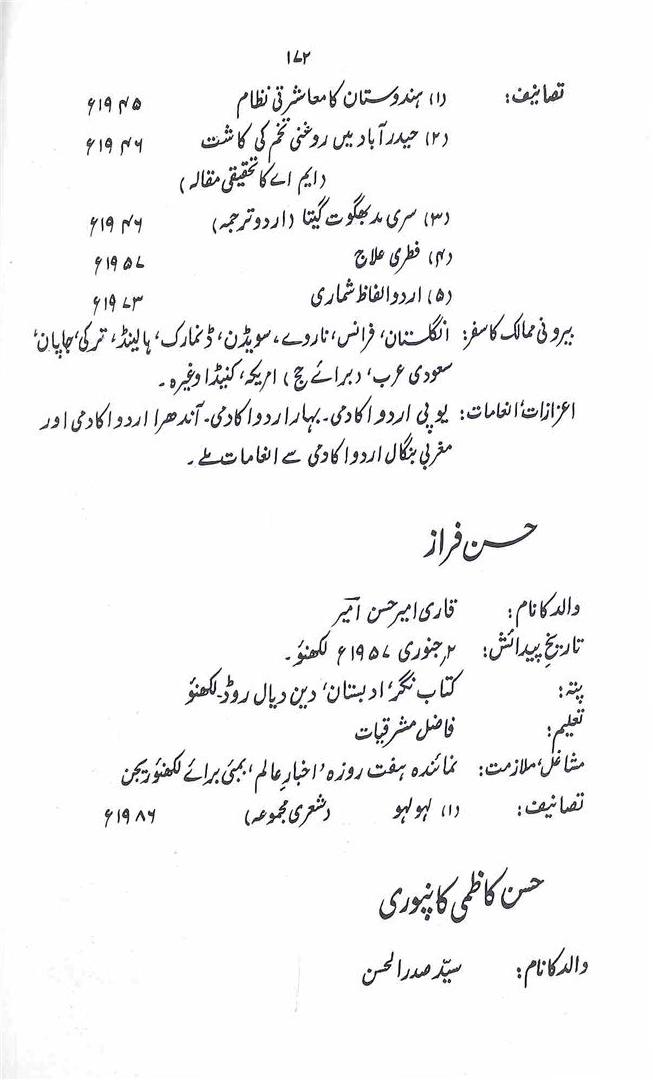 ۱۷۲
تصانیف: (۱) ہندوستان کا معاشرتی نظام ۱۹۴۵ء
(۲) حیدرآباد میں روغنی تخم کی کاشت ۱۹۴۶ء
(ایم اے کا تحقیقی مقالہ)
(۳) سری مد بھگوت گیتا (اردو ترجمہ) ۱۹۴۶ء
(۴) فطری علاج ۱۹۵۷ء
(۵) اردو الفاظ شماری ۱۹۷۳ء
بیرونی ممالک کا سفر: انگلستان، فرانس، ناروے، سویڈن، ڈنمارک، ہالینڈ، ترکی، جاپان،
سعودی عرب، (برائے حج) امریکہ، کنیڈا وغیرہ۔
اعزازات، انعامات: یو پی اردو اکادمی۔ بہار اردو اکادمی۔ آندھرا اردو اکادمی اور
مغربی بنگال اردو اکادمی سے انعامات ملے۔
حسن فراز
والد کا نام: قاری امیر حسن امیر
تاریخِ پیدائش: ۲؍ جنوری ۱۹۵۷ء لکھنؤ۔
پتہ: کتاب نگر، ادبستان، دین دیال روڈ۔ لکھنؤ
تعلیم: فاضل مشرقیات
مشاغل، ملازمت: نمائندہ ہفت روزہ ’اخبارِ عالم‘ بمبئی برائے لکھنؤ ریجن
تصانیف: (۱) لہو لہو (شعری مجموعہ) ۱۹۸۶ء
حسن کاظمی کانپوری
والد کا نام: سیّد صدر الحسن